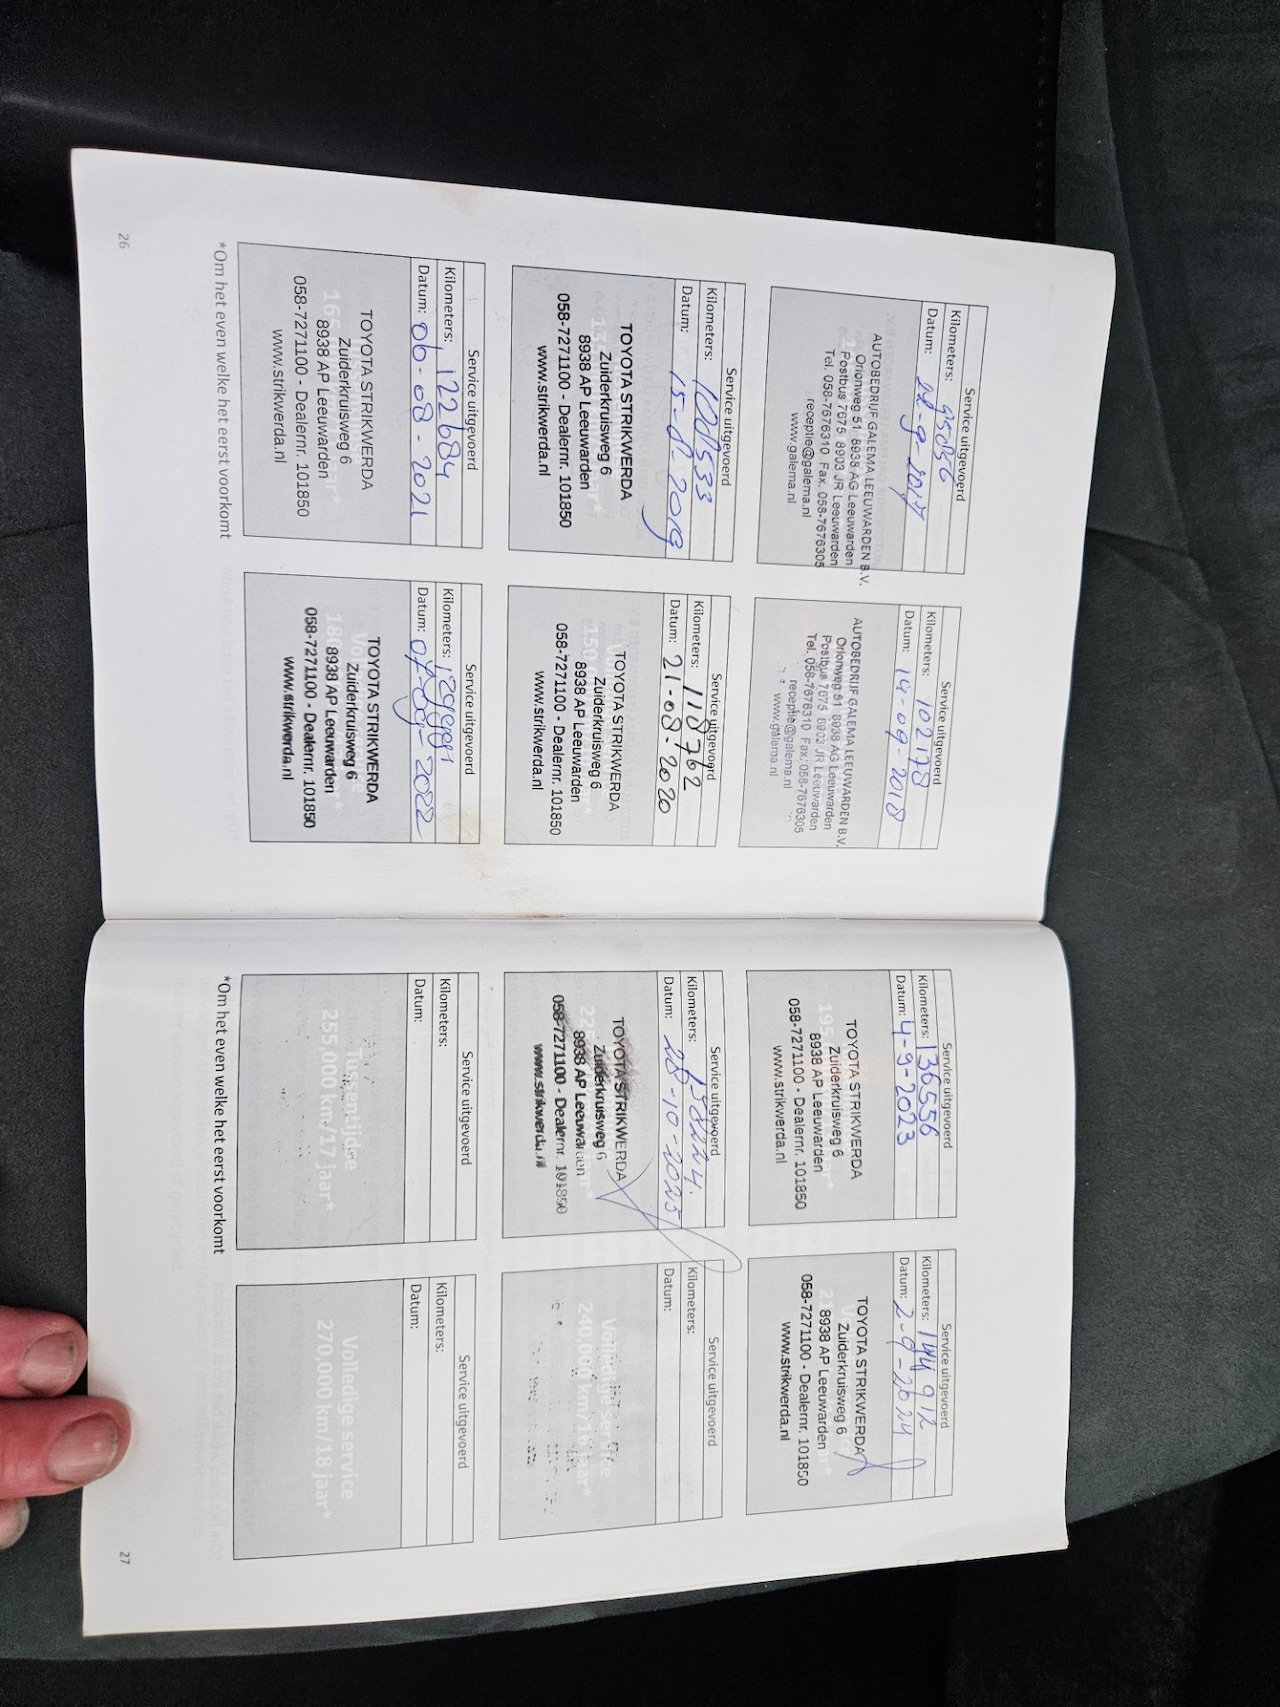 Service uitgevoerd
Kilometers: 95856
Datum: 28-9-2017
AUTOBEDRIJF GALEMA LEEUWARDEN B.V.
Orionweg 51 8938 AG Leeuwarden
Postbus 7675 8903 JR Leeuwarden
Tel. 058-7676310 Fax. 058-7676305
receptie@galema.nl
www.galema.nl
Service uitgevoerd
Kilometers: 102178
Datum: 14-09-2018
AUTOBEDRIJF GALEMA LEEUWARDEN B.V.
Orionweg 51 8938 AG Leeuwarden
Postbus 7675 8903 JR Leeuwarden
Tel. 058-7676310 Fax: 058-7676305
receptie@galema.nl
www.galema.nl
Service uitgevoerd
Kilometers:
Datum: 15-8-2019
TOYOTA STRIKWERDA
Zuiderkruisweg 6
8938 AP Leeuwarden
058-7271100 - Dealernr. 101850
www.strikwerda.nl
Service uitgevoerd
Kilometers: 118762
Datum: 21-08-2020
TOYOTA STRIKWERDA
Zuiderkruisweg 6
8938 AP Leeuwarden
058-7271100 - Dealernr. 101850
www.strikwerda.nl
Service uitgevoerd
Kilometers: 122684
Datum: 06-08-2021
TOYOTA STRIKWERDA
Zuiderkruisweg 6
8938 AP Leeuwarden
058-7271100 - Dealernr. 101850
www.strikwerda.nl
Service uitgevoerd
Kilometers:
Datum:
TOYOTA STRIKWERDA
Zuiderkruisweg 6
8938 AP Leeuwarden
058-7271100 - Dealernr. 101850
www.strikwerda.nl
*Om het even welke het eerst voorkomt
26
Service uitgevoerd
Kilometers: 136556
Datum: 4-9-2023
TOYOTA STRIKWERDA
Zuiderkruisweg 6
8938 AP Leeuwarden
058-7271100 - Dealernr. 101850
www.strikwerda.nl
Service uitgevoerd
Kilometers: 144912
Datum: 2-9-2024
TOYOTA STRIKWERDA
Zuiderkruisweg 6
8938 AP Leeuwarden
058-7271100 - Dealernr. 101850
www.strikwerda.nl
Service uitgevoerd
Kilometers: 158224.
Datum: 28-10-2025
TOYOTA STRIKWERDA
Zuiderkruisweg 6
8938 AP Leeuwarden
058-7271100 - Dealernr. 101850
www.strikwerda.nl
Service uitgevoerd
Kilometers:
Datum:
Volledige service
240,000 km/16 jaar*
Service uitgevoerd
Kilometers:
Datum:
Tussentijdse
255,000 km/17 jaar*
Service uitgevoerd
Kilometers:
Datum:
Volledige service
270,000 km/18 jaar*
*Om het even welke het eerst voorkomt
27